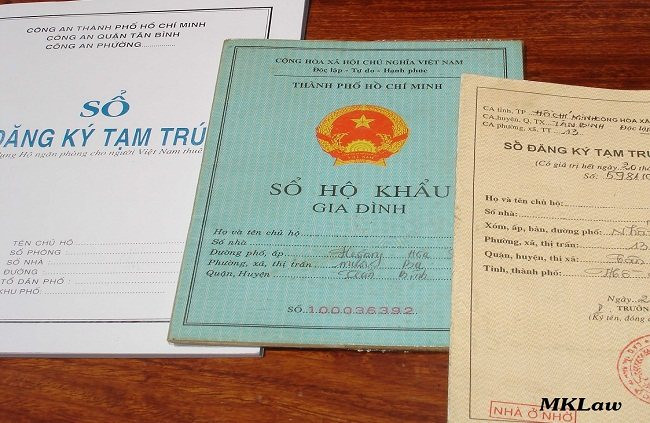 CÔNG AN THÀNH PHỐ HỒ CHÍ MINH
CÔNG AN QUẬN TÂN BÌNH
CÔNG AN PHƯỜNG
SỔ
ĐĂNG KÝ TẠM TRÚ
ngăn phòng cho người Việt Nam thuê
TÊN CHỦ HỘ
SỐ PHÒNG
SỐ NHÀ
ĐƯỜNG
TỔ DÂN PHỐ
KHU PHỐ:
CỘNG HÒA XÃ HỘI CHỦ NGHĨA VIỆT NAM
Độc lập - Tự do - Hạnh phúc
THÀNH PHỐ HỒ CHÍ MINH
SỔ HỘ KHẨU
GIA ĐÌNH
Họ và tên chủ hộ
Số nhà
Đường phố, ấp
Phường, xã, thị trấn
Quận, Huyện Tân Bình
SỐ 100036392
CA tỉnh, TP HỒ CHÍ MINH CỘNG HÒA XÃ
CA huyện, Q, TX TÂN BÌNH Độc lập
CA phường, xã, TT 13
SỔ ĐĂNG KÝ TẠM TRÚ
(Có giá trị hết ngày 20 thá
Số:
Họ và tên chủ hộ:
Số nhà:
Xóm, ấp, bản, đường phố:
Phường, xã, thị trấn: 13
Quận, huyện, thị xã: Tân
Tỉnh, thành phố: Hồ
Ngày
TRƯỞNG
(Ký tên, đóng
NHÀ Ở NHỜ
MKLaw